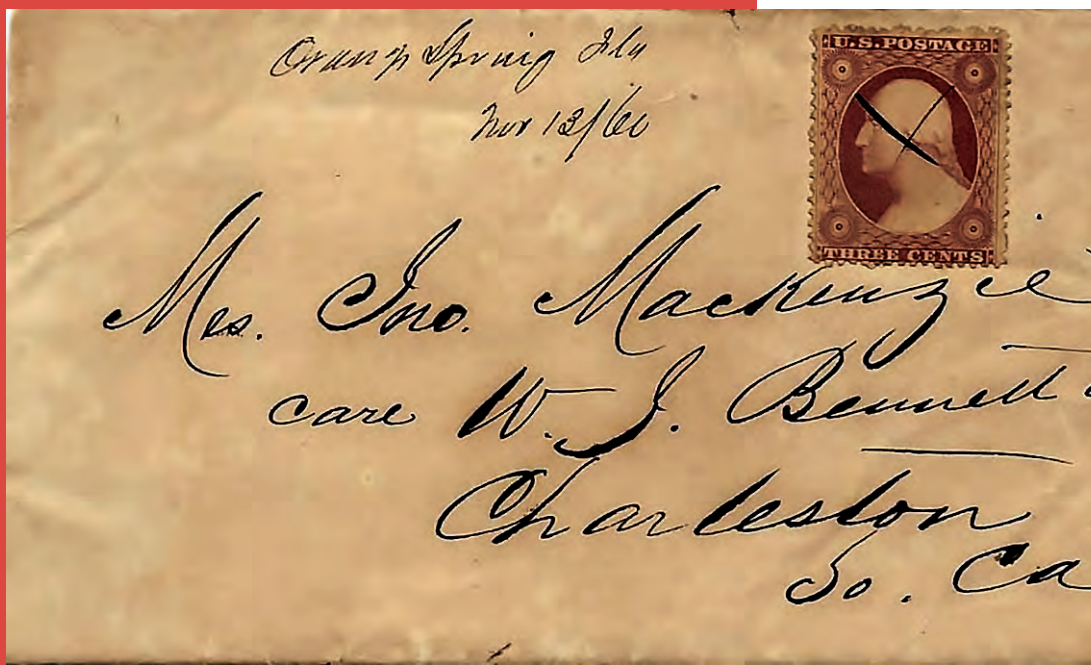 Orange Spring Fla
Nov 13/60
U.S. POSTAGE
THREE CENTS
Mrs. Jno. Mackenzie
care W. J. Bennett
Charleston
So. Ca